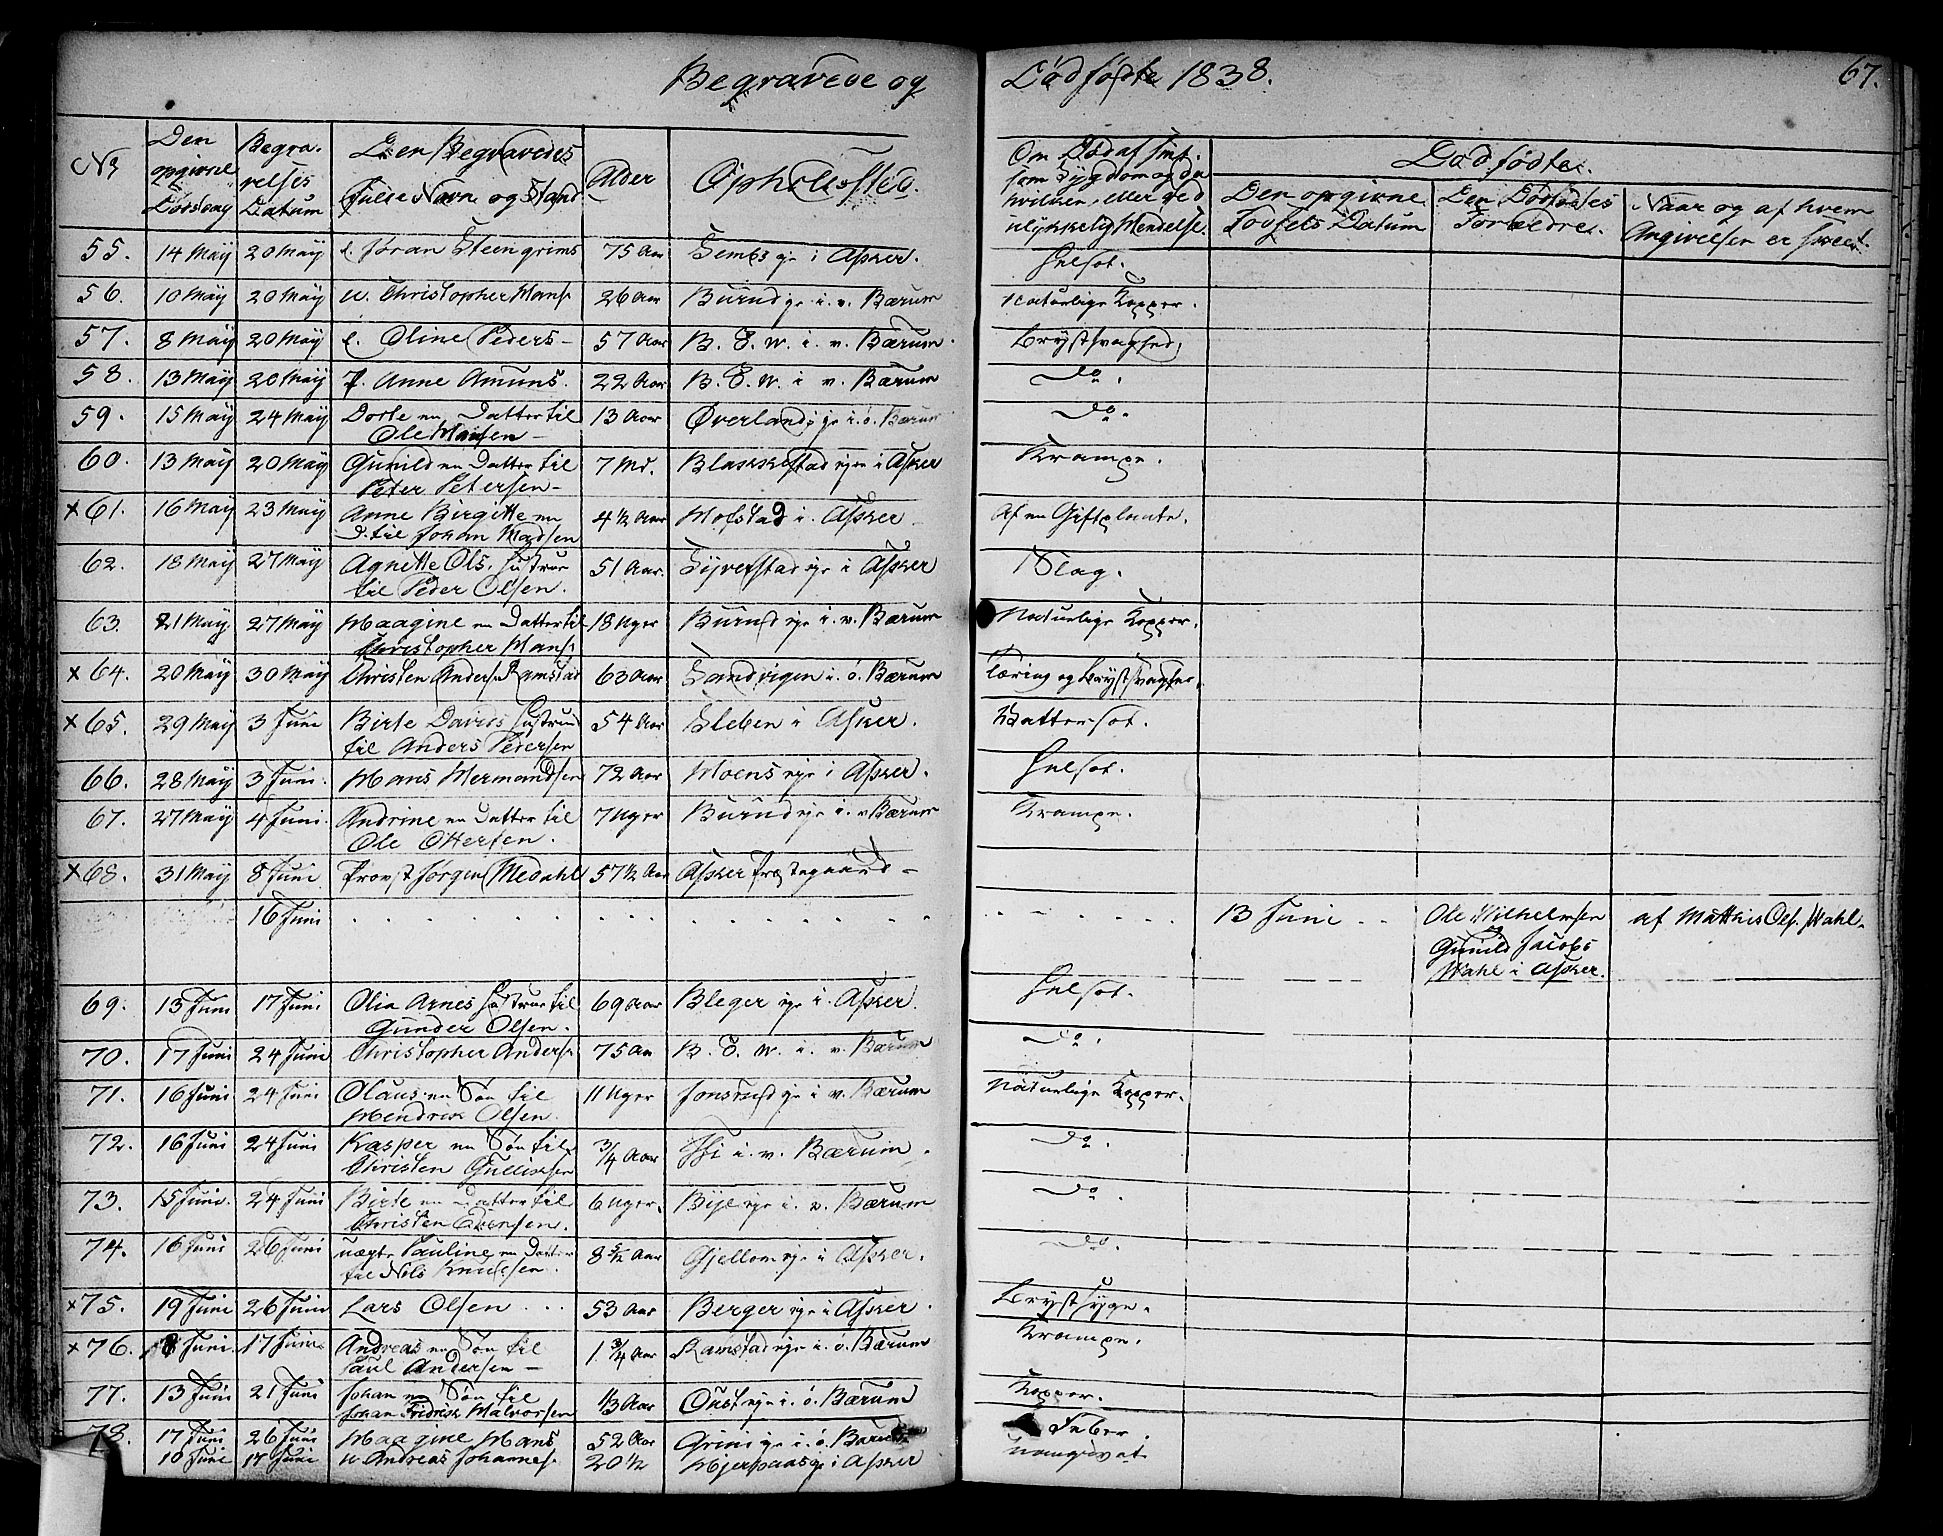 Begravede og Dødfødte 1838. 67.
No
Den opgivne Dødsdag
Begravelses Datum
Den Begravedes fulde Navn og Stand
Alder
Opholdssted.
Om Død af smitsom Sygdom og da hvilken, eller ved ulykkelig Hendelse.
Dødfødte.
Den opgivne Fødsels Datum
Den Dødfødtes Forældre.
Naar og af hvem Angivelsen er skeet.
55. 14 Maÿ 20 Maÿ e. Jøran Steengrims 75 Aar Sembs eje i Asker. Helsot.
56. 10 Maÿ 20 Maÿ u. Christopher Hans. 26 Aar Burud eje i. v. Bærum Naturlige Kopper.
57. 8 Maÿ 20 Maÿ e. Oline Peders- 57 Aar B. E. W. i. v. Bærum. Brystsvaghed,
58. 13 Maÿ 20 Maÿ P. Anne Amuns. 22 Aar B. E. W. i v. Bærum Do.
59. 15 Maÿ 24 Maÿ Dorte en Datter til 13 Aar Øverlands eje i. ö. Bærum Do.
Ole Hansen-
60. 13 Maÿ 20 Maÿ Gunild en Datter til 7 Md. Blakkestad eje i Asker Krampe.
Peter Petersen-
x 61. 16 Maÿ 23 Maÿ Anne Birgitte en 4 1/2 Aar Hofstad i. Asker Af en Giftplante.
D. til Johan Madsen
62. 18 Maÿ 27 Maÿ Agnette Ols, Hustrue 51 Aar. Syverstad eje i Asker Slag.
til Peder Olsen.
63. 21 Maÿ 27 Maÿ Maagine en Datter til 18 Uger Burud eje i. v. Bærum Naturlige Kopper.
Christopher Hans.
x 64. 20 Maÿ 30 Maÿ Christen Anders. Ramstad 63 Aar Sandvigen i. ö. Bærum Tæring og Brystsvaghed,
x 65. 29 Maÿ 3 Juni Birte Davids Hustrue 54 Aar Sleben i Asker. Vattersot.
til Anders Pedersen
66. 28 Maÿ 3 Juni. Hans Hermandsen 72 Aar Moens eje i Asker. Helsot.
67. 27 Maÿ 4 Juni. Andrine en Datter til 7 Uger Burud eje i. v Bærum Krampe.
Ole Ottersen.
x 68. 31 Maÿ 8 Juni Provst Jørgen Medahl 57 1/2 Aar Asker Præstegaard-
16 Juni 13 Juni Ole Wilhelmsen af Matthis Ols. Wahl.
og
Gunild Jacobs
Wahl i Asker.
69. 13 Juni 17 Juni Olia Arnes Hustrue til 69 Aar Bleger eje i. Asker. Helsot.
Gunder Olsen.
70. 17 Juni 24 Juni Christopher Anders. 75 Aa B. E. W. i. v. Bærum Do.
71. 16 Juni 24 Juni Olaus en Søn til 11 Uger Jonsrud eje i v. Bærum Naturlige Kopper.
Hendrik Olsen.
72. 16 Juni 24 Juni Kasper en Søn til 3/4 Aar Isi i. v. Bærum. Do.
Christen Gulliksen
73. 15 Juni. 24 Juni Birte en Datter til 6 Uger. Bije eje i. v. Bærum Do.
Christen Evensen.
74. 16 Juni 26 Juni uægte Pauline en Datter 8 Aar Gjellom eje i Asker. Do.
til Nels Knudsen.
x 75. 19 Juni 26 Juni Lars Olsen ... 53 Aar Berger eje i Asker. Brystsyge.
x 76. 8 Juni. 17 Juni Andreas en Søn til 1 3/4 Aar Ramstad eje i. ö. Bærum Krampe.
Paul Andersen-
77. 13 Juni 21 Juni Johan en Søn til 1/3 Aar Oust eje i. ö. Bærum Kopper.
Johan Fridrik Halvorsen
78. 17 Juni 26 Juni Maagine Hans 52 Aar Grini eje i. ö. Bærum Feber.
10 Juni 17 Juni u Andreas Johannes. 20 1/2 i Asker uangivet.